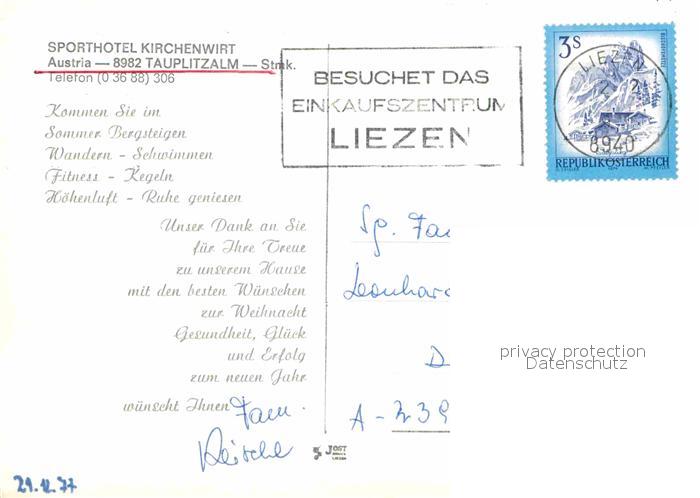 SPORTHOTEL KIRCHENWIRT
Austria — 8982 TAUPLITZALM — Stmk.
Telefon (0 36 88) 306
Kommen Sie im
Sommer Bergsteigen
Wandern - Schwimmen
Fitness - Kegeln
Höhenluft - Ruhe geniesen
Unser Dank an Sie
für Ihre Treue
zu unserem Hause
mit den besten Wünschen
zur Weihnacht
Gesundheit, Glück
und Erfolg
zum neuen Jahr
wünscht Ihnen Fam.
29.12.77
BESUCHET DAS
EINKAUFSZENTRUM
LIEZEN
3S
LIEZEN
8940
REPUBLIK ÖSTERREICH
Sp. Fam
Leonhar
D
A - 239
privacy protection
Datenschutz
JOST